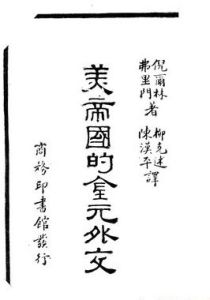 倪爾林
弗里門 著
柳克述
陳漢平 譯
美帝國的金元外交
商務印書館發行